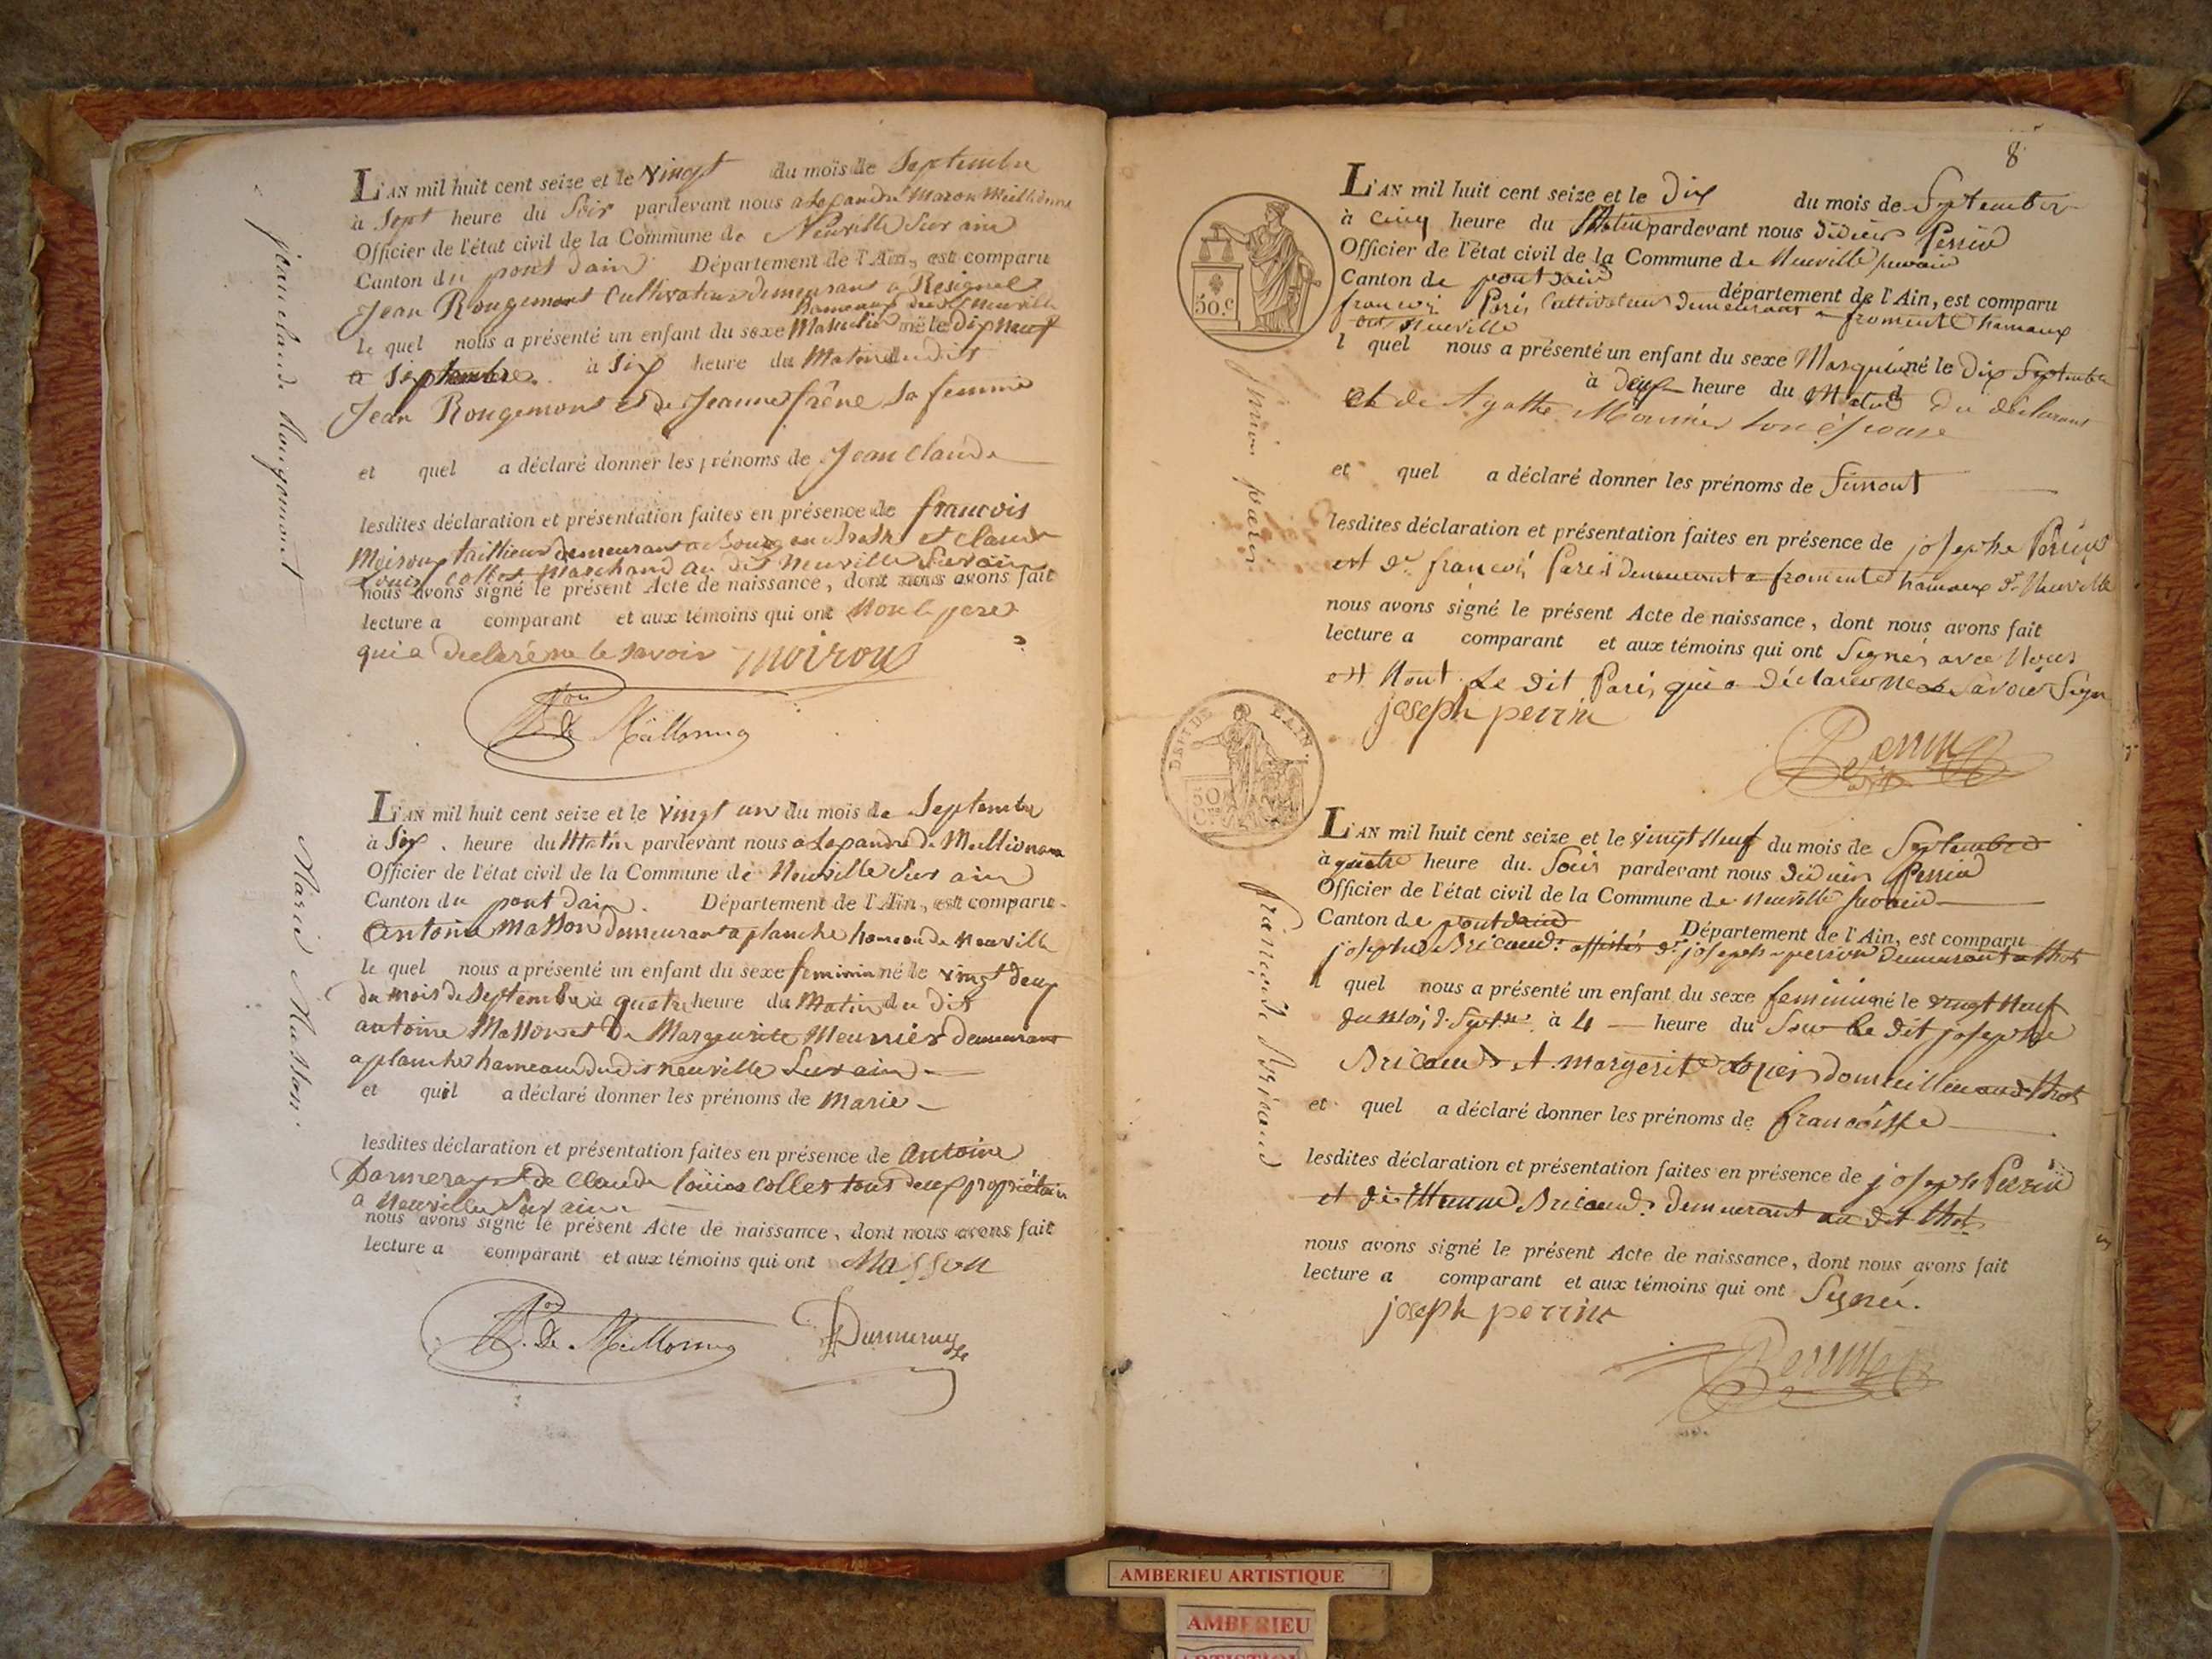 L'AN mil huit cent seize et le vingt du mois de Septembre
à Sept heure du Soir pardevant nous alexandre
Officier de l'état civil de la Commune de Neuville Sur ain
Canton du pont dain Département de l'Ain, est comparu
Jean Rougemont Cultivateur demeurant a Resignel
hameaux dudt neuville
le quel nous a présenté un enfant du sexe Masculin né le dixneuf
Septembre à Six heure du Matin du dit
Jean Rougemont et de Jeanne frêne Sa femme
et quel a déclaré donner les prénoms de Jean Claude
lesdites déclaration et présentation faites en présence de francois
Moiroux tailleur demeurant a Bourg en et claude
Louis collet Marchand au dit Neuville Surain
nous avons signé le présent Acte de naissance, dont nous avons fait
lecture a comparant et aux témoins qui ont Non le pere
qui a declaré ne le savoir moiroux
Bon de Meillonnas
jean claude Rougemont
L'AN mil huit cent seize et le vingt un du mois de Septembre
à Six heure du Matin pardevant nous alexandre de Meillionnas
Officier de l'état civil de la Commune de Neuville Sur ain
Canton du pont Dain. Département de l'Ain, est comparu
Antoine Masson demeurant a planche hameau de neuville
le quel nous a présenté un enfant du sexe feminin né le vingt deux
du mois de Septembre à quatre heure du Matin du dit
antoine Masson et De Marguerite Meunier demeurant
a planche hameau du dit neuville Surain
et quil a déclaré donner les prénoms de Marie
lesdites déclaration et présentation faites en présence de Antoine
Darmeray et de Claude louis Collet tous deux propriétaire
a Neuville Sur ain
nous avons signé le présent Acte de naissance, dont nous avons fait
lecture a comparant et aux témoins qui ont Masson
Bon de Meillonnas Darmeray
Marie Masson
8
L'AN mil huit cent seize et le Dix du mois de Septembre
à cinq heure du Matin pardevant nous didier Perrin
Officier de l'état civil de la Commune de Neuville surain
Canton de pont dain département de l'Ain, est comparu
francois Paris Cultivateur demeurant a fromente hameaux
Neuville
l quel nous a présenté un enfant du sexe Masquin né le Dix Septembre
à Deux heure du Matin du déclarant
et de Agathe Mounier son épouse
et quel a déclaré donner les prénoms de Simont
lesdites déclaration et présentation faites en présence de josephe Perrin
et de francois Paris demeurant a fromente hameaux de Neuville
nous avons signé le présent Acte de naissance, dont nous avons fait
lecture a comparant et aux témoins qui ont Signés avec Nous
et Nont Le dit Paris qui a déclaré ne Savoir Signe
joseph perrin
Perrin
50.c
DEPT DE L'AIN
50
L'AN mil huit cent seize et le vingt Neuf du mois de Septembre
à quatre heure du Soir pardevant nous didier Perrin
Officier de l'état civil de la Commune de Neuville surain
Canton de pontdain Département de l'Ain, est comparu
josephe Bricaud assisté de joseph perrin demeurant a thol
l quel nous a présenté un enfant du sexe feminin né le vingt Neuf
du mois de Septre à 4 heure du Soir Le dit josephe
Bricaud et margerite domicillie au dt thol
et quel a déclaré donner les prénoms de francoisse
lesdites déclaration et présentation faites en présence de joseph Perrin
et de Bricaud demeurant au dit thol
nous avons signé le présent Acte de naissance, dont nous avons fait
lecture a comparant et aux témoins qui ont Signé.
joseph perrin
Perrin
françoise Bricaud
AMBERIEU ARTISTIQUE
AMBERIEU
ARTISTIQUE